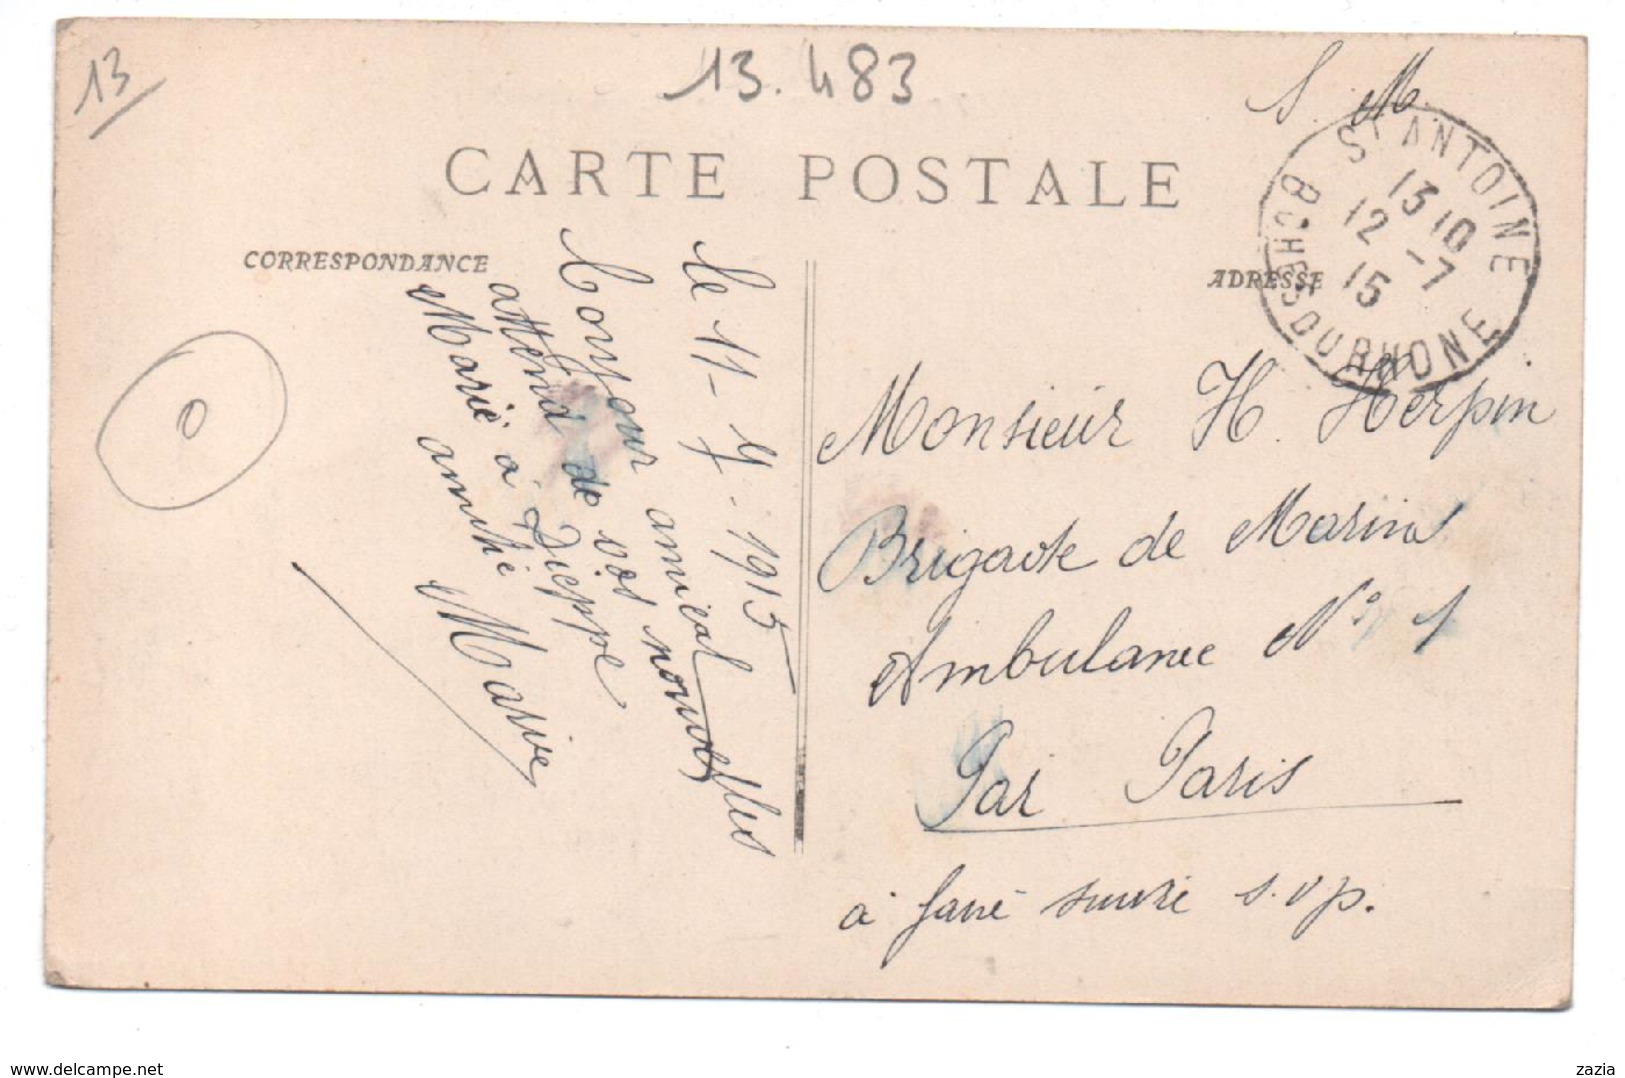 13
13.483
S. M.
CARTE POSTALE
CORRESPONDANCE
ADRESSE
ST ANTOINE
13 10
12 -7
15
BCHES DU RHONE
le 11-7-1915
Bonjour amical
attend de vos nouvelles
Marie à Dieppe
amitié Marive
Monsieur H. Herpin
Brigade de Marins
Ambulance N° 1
Par Paris
à faire suivre s.v.p.
www.delcampe.net
zazia